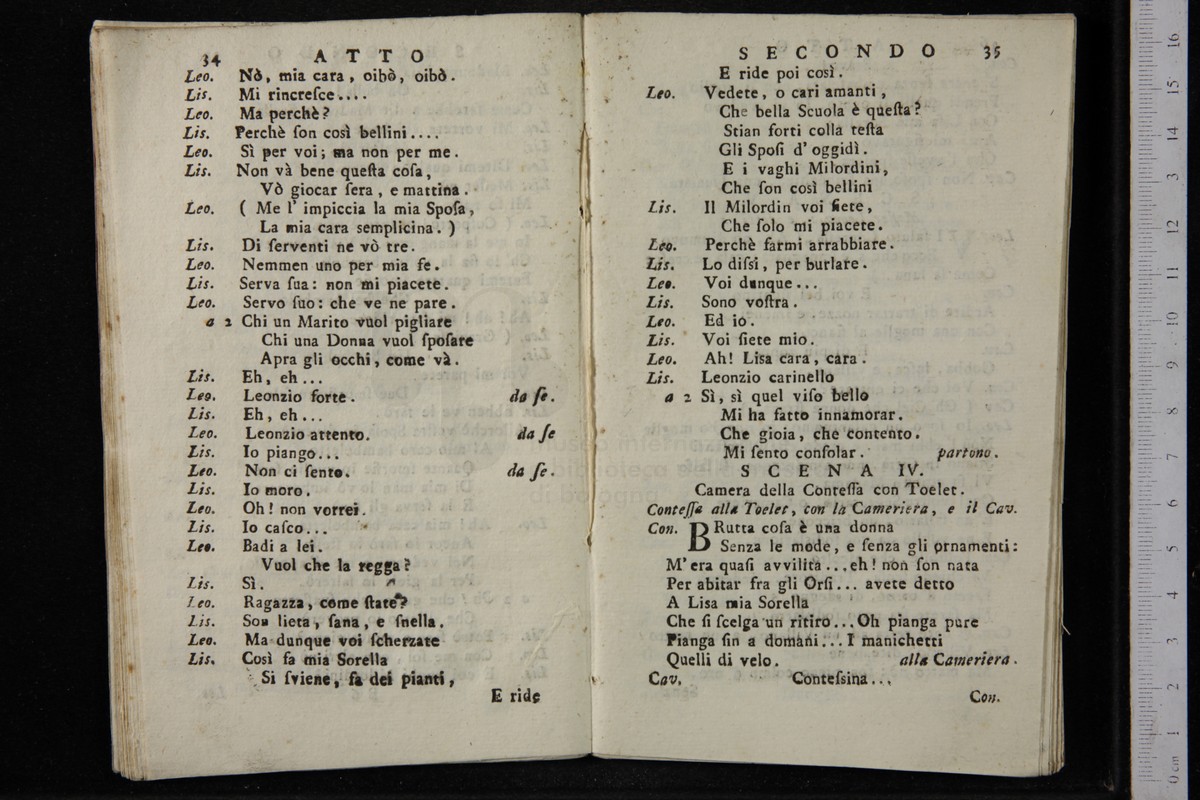 34 ATTO
Leo. Nò, mia cara, oibò, oibò.
Lis. Mi rincreſce....
Leo. Ma perchè?
Lis. Perchè ſon così bellini....
Leo. Sì per voi; ma non per me.
Lis. Non và bene queſta coſa,
Vò giocar ſera, e mattina.
Leo. ( Me l' impiccia la mia Spoſa,
La mia cara semplicina. )
Lis. Di ſerventi ne vò tre.
Leo. Nemmen uno per mia fe.
Lis. Serva ſua: non mi piacete.
Leo. Servo ſuo: che ve ne pare.
a 2 Chi un Marito vuol pigliare
Chi una Donna vuol ſpoſare
Apra gli occhi, come và.
Lis. Eh, eh...
Leo. Leonzio forte. da ſe.
Lis. Eh, eh...
Leo. Leonzio attento. da ſe
Lis. Io piango...
Leo. Non ci ſento. da ſe.
Lis. Io moro.
Leo. Oh! non vorrei.
Lis. Io caſco...
Leo. Badi a lei.
Vuol che la regga?
Lis. Sì.
Leo. Ragazza, come ſtate?
Lis. Son lieta, ſana, e ſnella.
Leo. Ma dunque voi ſcherzate
Lis. Così fa mia Sorella
Si ſviene, fa dei pianti,
E ride
SECONDO 35
E ride poi così.
Leo. Vedete, o cari amanti,
Che bella Scuola è queſta?
Stian forti colla teſta
Gli Spoſi d' oggidì.
E i vaghi Milordini,
Che ſon così bellini
Lis. Il Milordin voi ſiete,
Che ſolo mi piacete.
Leo. Perchè farmi arrabbiare.
Lis. Lo diſsi, per burlare.
Leo. Voi dunque...
Lis. Sono voſtra.
Leo. Ed io.
Lis. Voi ſiete mio.
Leo. Ah! Lisa cara, cara.
Lis. Leonzio carinello
a 2 Sì, sì quel viſo bello
Mi ha fatto innamorar.
Che gioia, che contento.
Mi ſento conſolar. partono.
SCENA IV.
Camera della Conteſſa con Toelet.
Conteſſa alla Toelet, con la Cameriera, e il Cav.
Con. BRutta coſa è una donna
Senza le mode, e ſenza gli ornamenti:
M' era quaſi avvilita...eh! non ſon nata
Per abitar fra gli Orſi... avete detto
A Lisa mia Sorella
Che ſi ſcelga un ritiro...Oh pianga pure
Pianga fin a domani... I manichetti
Quelli di velo. alla Cameriera.
Cav. Conteſsina...
Con.
16
15
14
13
12
11
10
9
8
7
6
5
4
3
2
1
0 cm